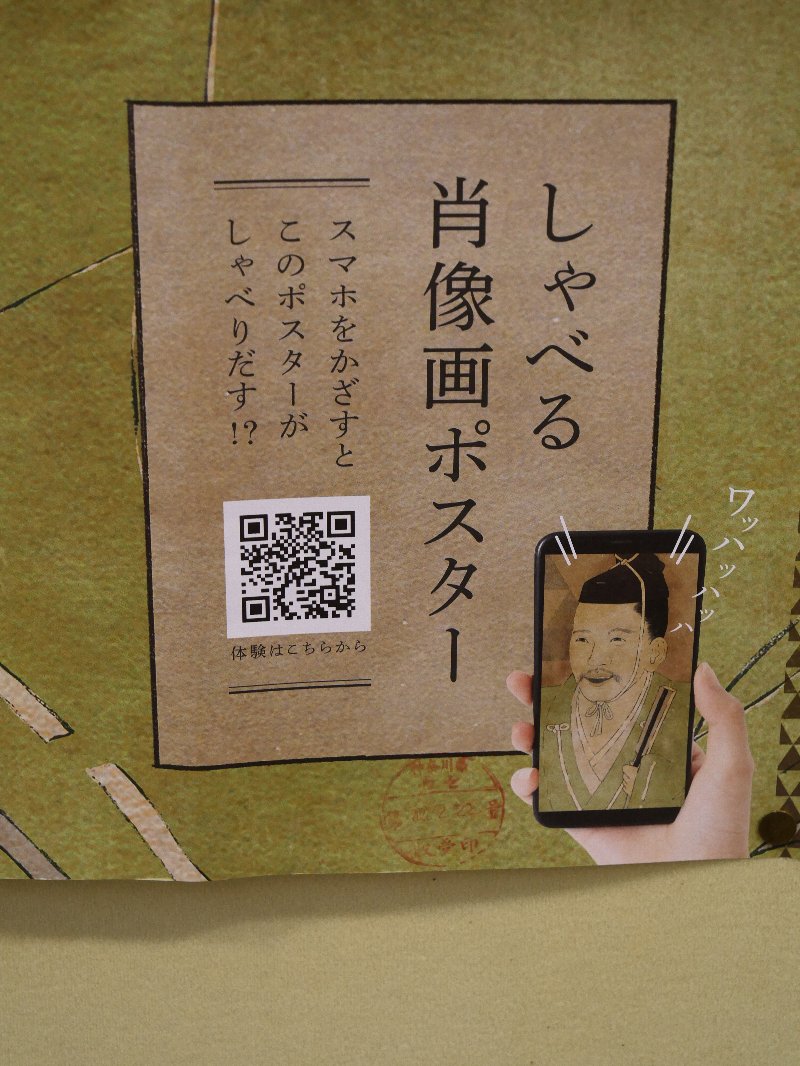 しゃべる
肖像画ポスター
スマホをかざすと
このポスターが
しゃべりだす!?
体験はこちらから
ワッハッハッハ